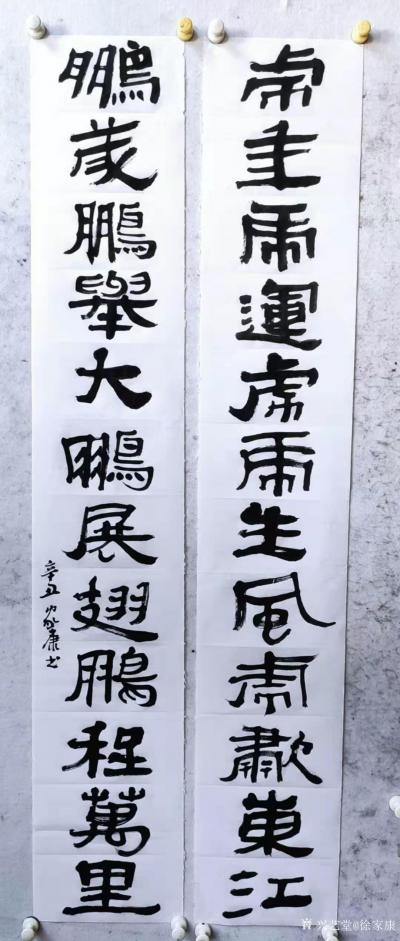 虎年虎運虎虎生風虎歗東江
鵬歲鵬舉大鵬展翅鵬程萬里
辛丑家康书
兴艺堂@徐家康